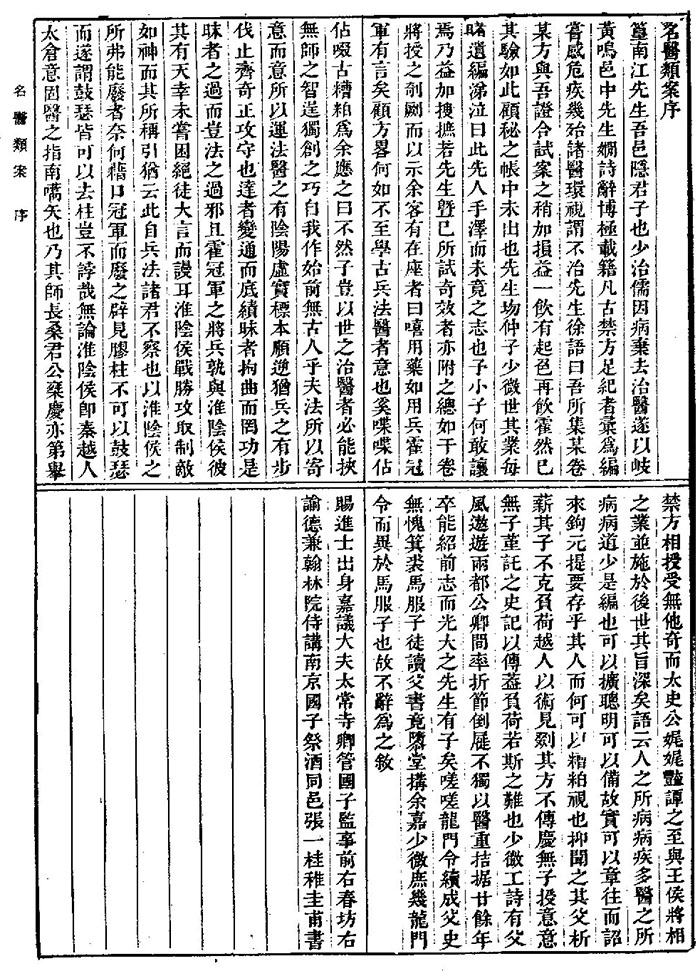 名醫類案序
篁南江先生吾邑隱君子也少治儒因病棄去治醫遂以岐
黃鳴邑中先生嫺詩辭博極載籍凡古禁方足紀者彙爲編
嘗感危疾幾殆諸醫環視謂不治先生徐語曰吾所集某卷
某方與吾證合試案之稍加損益一飲有起色再飲霍然已
其驗如此顧秘之帳中未出也先生歿仲子少微世其業每
睹遺編涕泣曰此先人手澤而未竟之志也予小子何敢讓
焉乃益加搜摭若先生曁巳所試奇效者亦附之總如干卷
將授之剞劂而以示余客有在座者曰嘻用藥如用兵霍冠
軍有言矣顧方畧何如不至學古兵法醫者意也奚喋喋佔
佔啜古糟粕爲余應之曰不然子豈以世之治醫者必能挾
無師之智逞獨創之巧自我作始前無古人乎夫法所以寄
意而意所以運法醫之有陰陽虛實標本順逆猶兵之有步
伐止齊奇正攻守也達者變通而底績昧者拘曲而罔功是
昧者之過而豈法之過邪且霍冠軍之將兵孰與淮陰侯彼
其有天幸未嘗困絕徒大言而謾耳淮陰侯戰勝攻取制敵
如神而其所稱引猶云此自兵法諸君不察也以淮陰侯之
所弗能廢者奈何藉口冠軍而廢之辟見膠柱不可以鼓瑟
而遂謂鼓瑟皆可以去柱豈不誖哉無論淮陰侯卽秦越人
太倉意固醫之指南嚆矢也乃其師長桑君公椉慶亦第舉
禁方相授受無他奇而太史公娓娓豔譚之至與王侯將相
之業並施於後世其旨深矣語云人之所病病疾多醫之所
病病道少是編也可以擴聰明可以備故實可以章往而詔
來鉤元提要存乎其人而何可以糟粕視也抑聞之其父析
薪其子不克負荷越人以術見剟其方不傳慶無子授意意
無子菫託之史記以傳葢負荷若斯之難也少微工詩有父
風遨遊兩都公卿間率折節倒屣不獨以醫重拮据廿餘年
卒能紹前志而光大之先生有子矣嗟嗟龍門令續成父史
無愧箕裘馬服子徒讀父書竟隳堂搆余嘉少微庶幾龍門
令而異於馬服子也故不辭爲之敘
賜進士出身嘉議大夫太常寺卿管國子監事前右春坊右
諭德兼翰林院侍講南京國子祭酒同邑張一桂稚圭甫書
名醫類案　序